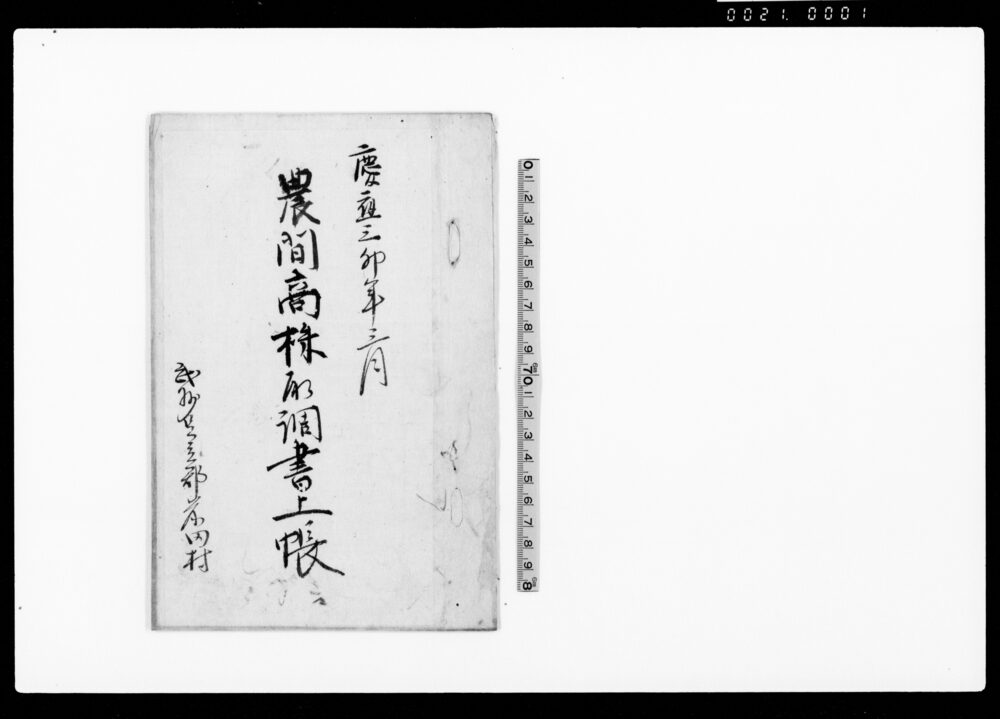 0021. 0001
慶應三卯年三月
農間商株取調書上帳
武州足立郡
田村
0 1 2 3 4 5 6 7 8 9 10 1 2 3 4 5 6 7 8 9 8